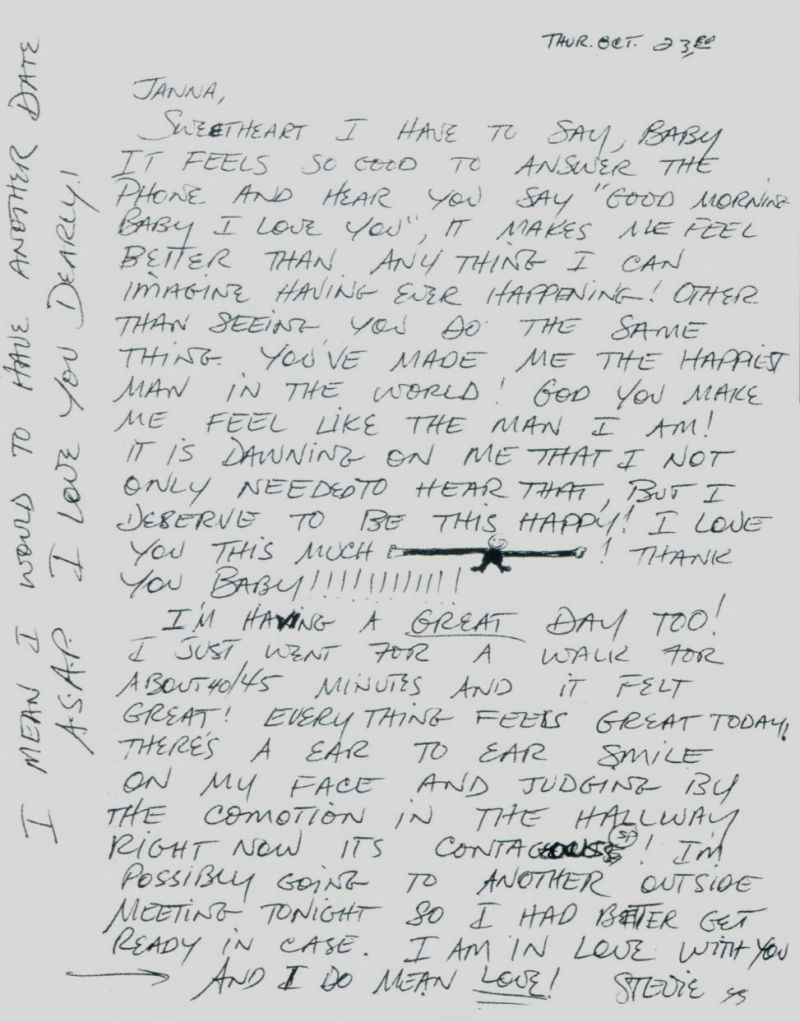 THUR. OCT. 23RD
JANNA,
SWEETHEART I HAVE TO SAY, BABY
IT FEELS SO GOOD TO ANSWER THE
PHONE AND HEAR YOU SAY "GOOD MORNING
BABY I LOVE YOU", IT MAKES ME FEEL
BETTER THAN ANY THING I CAN
IMAGINE HAVING EVER HAPPENING! OTHER
THAN SEEING YOU DO THE SAME
THING. YOU'VE MADE ME THE HAPPIEST
MAN IN THE WORLD! GOD YOU MAKE
ME FEEL LIKE THE MAN I AM!
IT IS DAWNING ON ME THAT I NOT
ONLY NEEDED TO HEAR THAT, BUT I
DESERVE TO BE THIS HAPPY! I LOVE
YOU THIS MUCH ! THANK
YOU BABY!!!!!!!!!!!
I'M HAVING A GREAT DAY TOO!
I JUST WENT FOR A WALK FOR
ABOUT 40/45 MINUTES AND IT FELT
GREAT! EVERY THING FEELS GREAT TODAY!
THERE'S A EAR TO EAR SMILE
ON MY FACE AND JUDGING BY
THE COMOTION IN THE HALLWAY
RIGHT NOW ITS CONTAGOUS (SP)! I'M
POSSIBLY GOING TO ANOTHER OUTSIDE
MEETING TONIGHT SO I HAD BETTER GET
READY IN CASE. I AM IN LOVE WITH YOU
AND I DO MEAN LOVE! STEVIE
I MEAN I WOULD TO HAVE ANOTHER DATE
A.S.A.P. I LOVE YOU DEARLY!